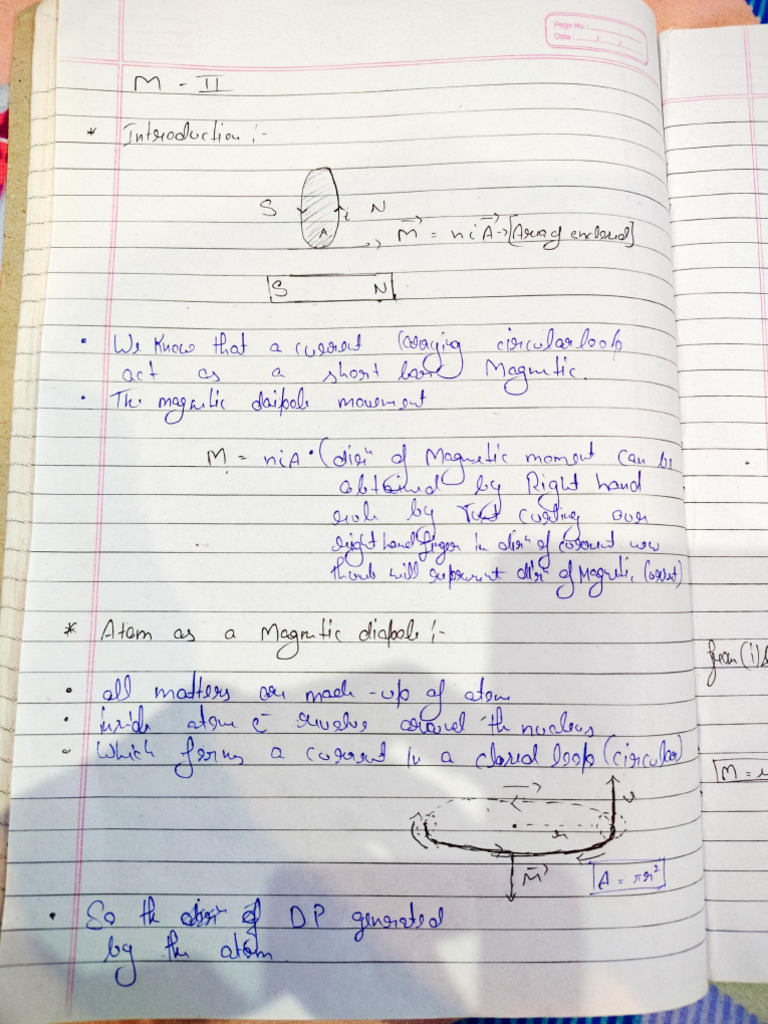 Page No.:
Date: / /
M - II
* Introduction :-
S i N
A
M⃗ = niA⃗ → [Area enclosed]
S N
• We know that a current carrying circular loop
act as a short bar Magnetic.
• The magnetic daipole movement
M = niA • (dirⁿ of Magnetic moment can be
obtained by Right hand
rule by curling our
right hand finger in dirⁿ of current now
thumb will represent dirⁿ of Magnetic
* Atom as a Magnetic diapole :-
• all matters are made-up of atom
• inside atom e⁻ revolve around the nucleus
• Which forms a current in a closed loop (circular)
v
r
M⃗ A = πr²
• So the dirⁿ of DP generated
by the atom
from (i)
M =